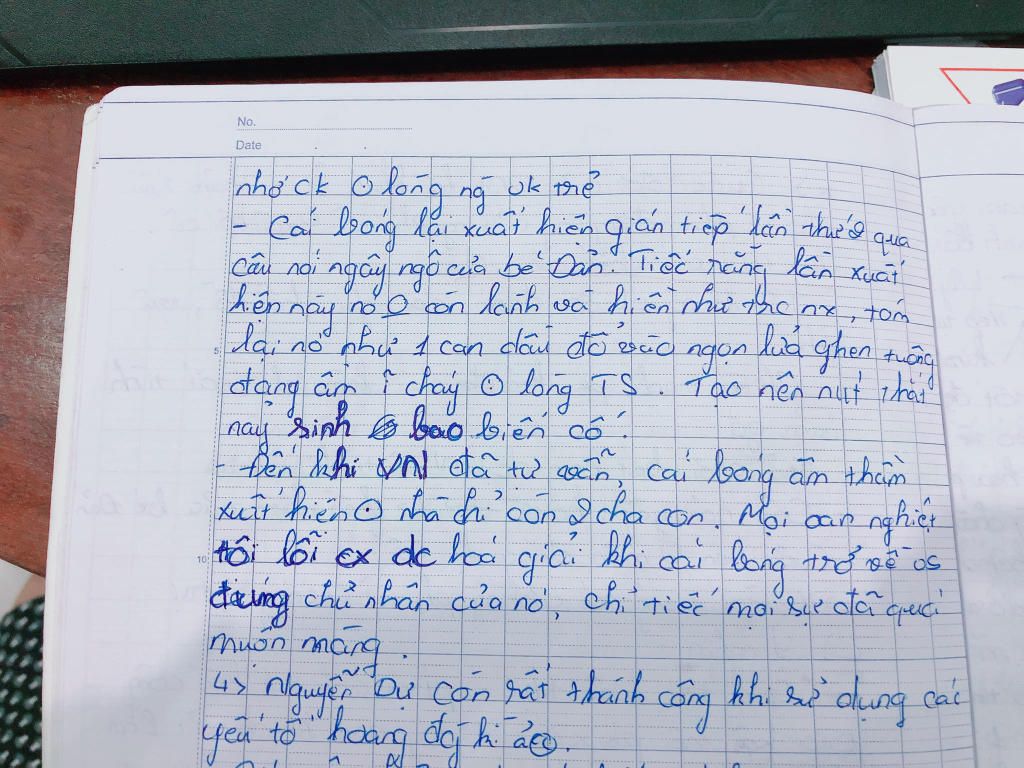 No.
Date
nhớ ck ⊙ lòng ng vk trẻ
- Cái bóng lại xuất hiện gián tiếp lần thứ 2 qua
câu nói ngây ngô của bé Đản. Tiếc rằng lần xuất
hiện này nó O còn lành và hiền như trc nx, tóm
lại nó như 1 can dầu đổ vào ngọn lửa ghen tuông
đang âm ỉ cháy ⊙ lòng TS. Tạo nên nút thắt
nảy sinh bao biến cố.
- Đến khi VN đã tự vẫn, cái bóng âm thầm
xuất hiện ⊙ nhà chỉ còn 2 cha con. Mọi oan nghiệt
tội lỗi cx dc hoá giải khi cái bóng trở về vs
đúng chủ nhân của nó, chỉ tiếc mọi sự đã quá
muộn màng.
↳ Nguyễn Dữ còn rất thành công khi sử dụng các
yếu tố hoang đg kì ảo.